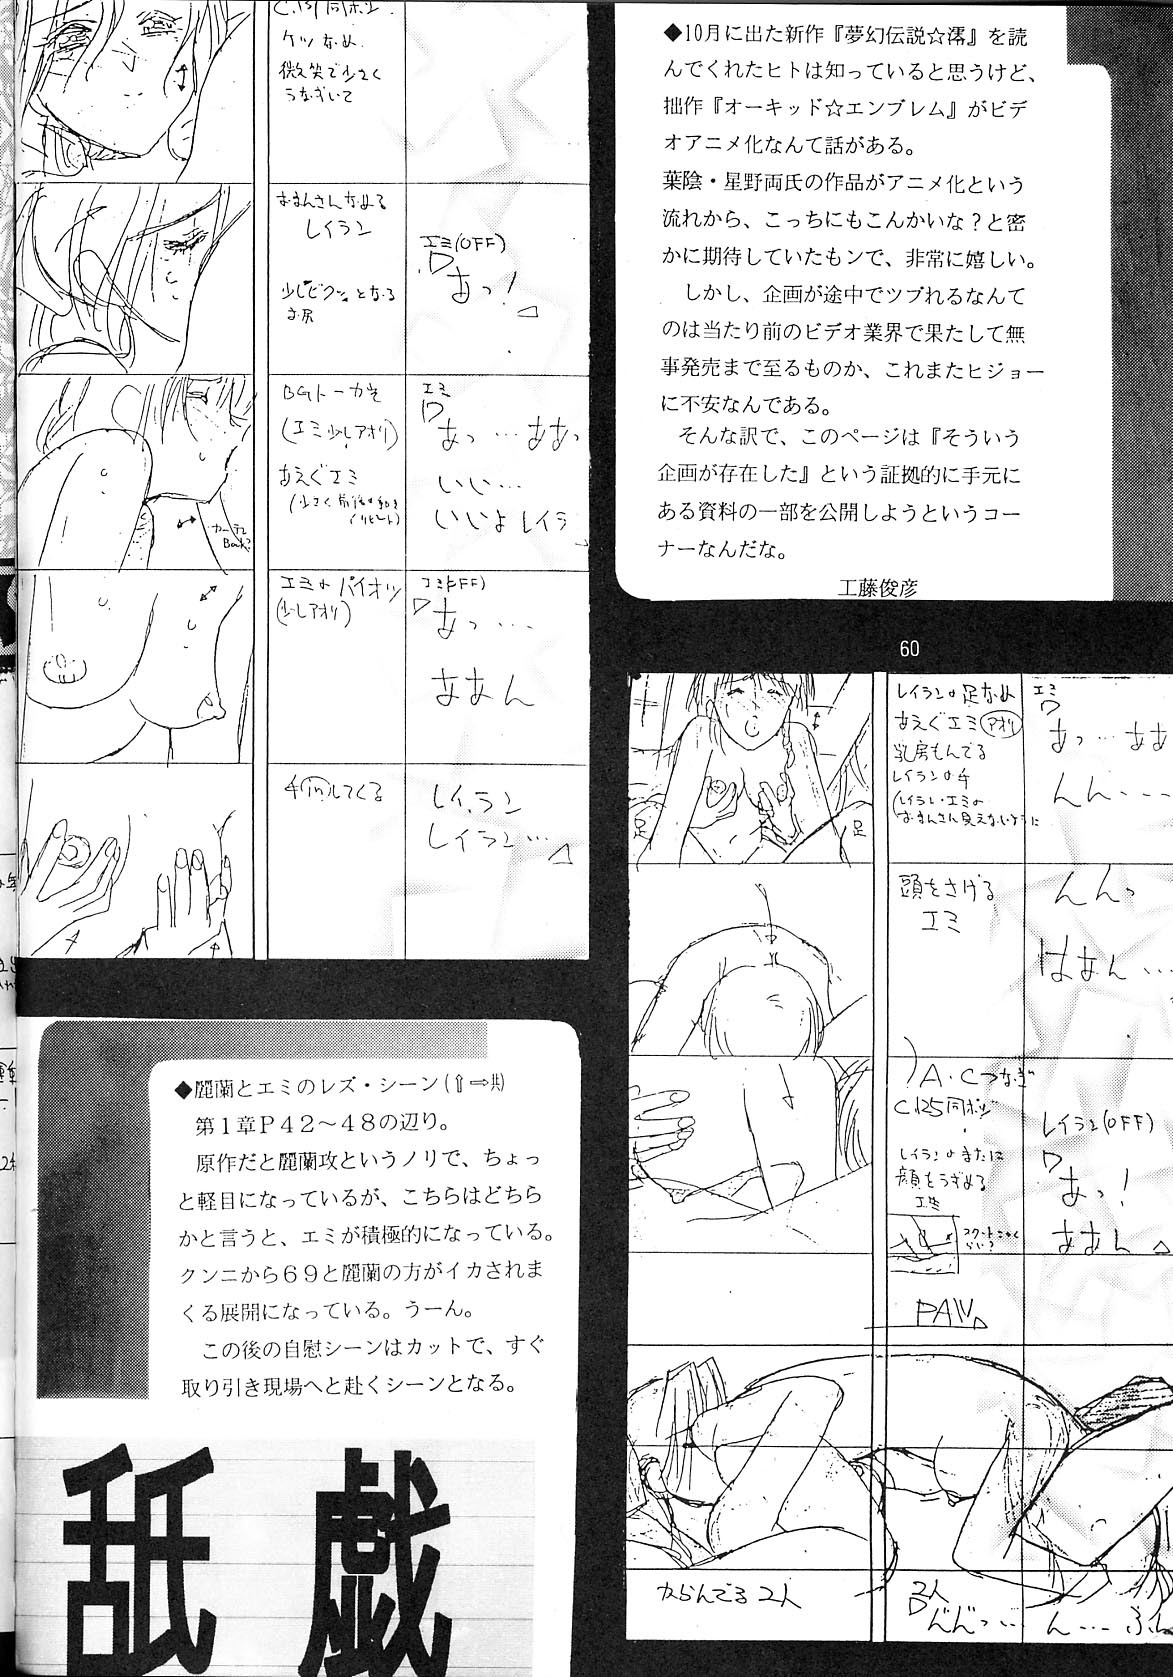 ◆10月に出た新作『夢幻伝説☆澪』を読
んでくれたヒトは知っていると思うけど、
拙作『オーキッド☆エンブレム』がビデ
オアニメ化なんて話がある。
葉陰・星野両氏の作品がアニメ化という
流れから、こっちにもこんかいな？と密
かに期待していたもンで、非常に嬉しい。
しかし、企画が途中でツブれるなんて
のは当たり前のビデオ業界で果たして無
事発売まで至るものか、これまたヒジョー
に不安なんである。
そんな訳で、このページは『そういう
企画が存在した』という証拠的に手元に
ある資料の一部を公開しようというコー
ナーなんだな。
工藤俊彦
60
微笑で少さく
うなずいて
おまんさんなめる
レイラン
エミ(OFF)
あっ!
少しビクッとなる
お尻
(エミ少しアオリ)
あえぐエミ
エミ
あっ…ああっ
いい…
いいよレイラ
カーテン
Back?
エミのパイオツ
(少しアオリ)
あっ…
ああん
手inしてくる
レイラン
レイラン…
レイランの足なめ
あえぐエミ(アオリ)
乳房もんでる
レイランの手
足
足
エミ
あっ…ああ
んん…
頭をさげる
エミ
んんっ
はあん…
A・Cつなぎ
C125同ポジ
レイランのまたに
顔をうずめる
エミ
レイラン(OFF)
あっ!
ああん
PAN
からんでる2人
2人
んんっ…
ん…ふん
◆麗蘭とエミのレズ・シーン(⇧⇨共)
第1章P42〜48の辺り。
原作だと麗蘭攻というノリで、ちょっ
と軽目になっているが、こちらはどちら
かと言うと、エミが積極的になっている。
クンニから69と麗蘭の方がイカされま
くる展開になっている。うーん。
この後の自慰シーンはカットで、すぐ
取り引き現場へと赴くシーンとなる。
舐戯